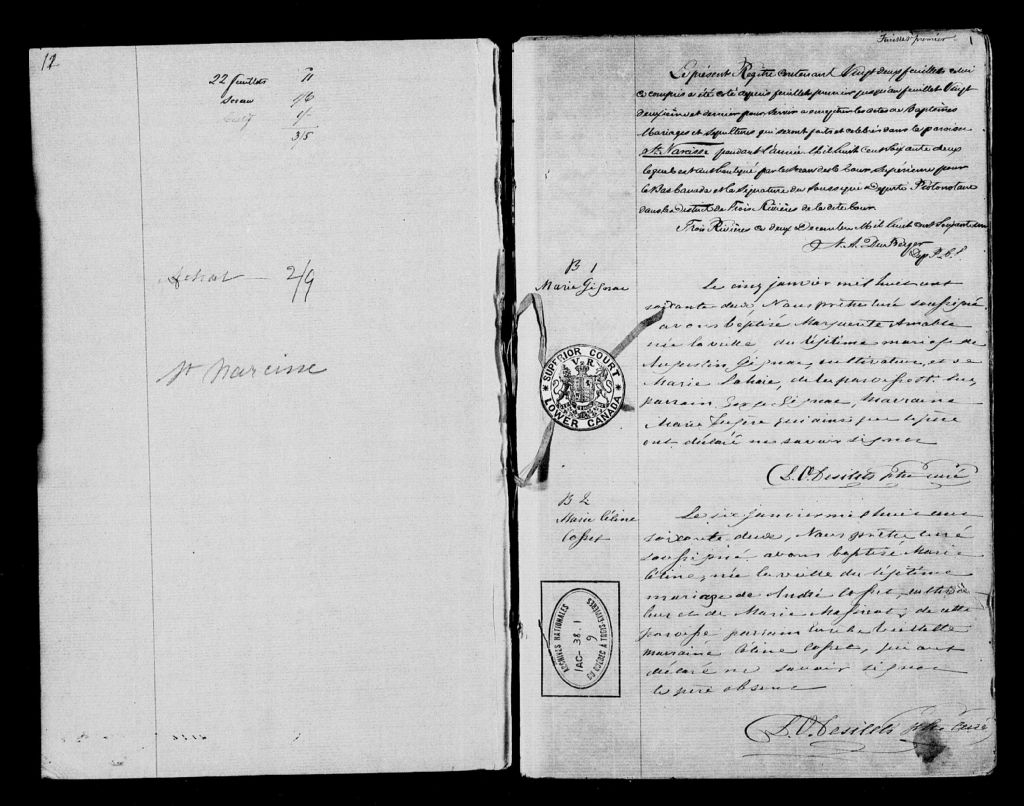 12
22 feuillets 11
Sceau
3/5
Achat — 2/9
St Narcisse
Feuillet premier 1
Le présent Régitre contenant Vingt deux feuillets celui
ci compris a été coté depuis feuillet premier jusqu'au feuillet Vingt
deuxième et dernier pour servir a enregitrer les actes de Baptêmes
Mariages et Sépultures qui seront faits et célébrés dans la paroisse
St. Narcisse pendant l'année Mil huit cent soixante deux
lequel est authentiqué par le Sceau de la Cour Supérieure pour
le Bas Canada et la signature du Soussigné Députe Protonotaire
dans le District de Trois Rivières de la dite Cour
Trois Rivières ce deux Decembre Mil huit cent Soixante un
Dep P.C.S.
B 1
Marie Gignac
Le cinq janvier mil huit cent
soixante deux, Nous prêtre curé soussigné
avons baptisé Marguerite Amable
née la veille du légitime mariage de
Augustin Gignac, cultivateur, et de
Marie Lahaie, de la paroisse St.
parrain George Gignac, marraine
Marie qui ainsi que le père
ont déclaré ne savoir signer
D. O. Desilets ptre curé
SUPERIOR COURT
V R
LOWER CANADA
B 2
Marie Céline
Cosset
Le six janvier mil huit cent
soixante deux, Nous prêtre curé
soussigné avons baptisé Marie
Céline, née la veille du légitime
mariage de André Cosset, cultiva-
teur et de Marie de cette
paroisse parrain
marraine Céline Cosset, qui ont
déclaré ne savoir signer
le père absent
D. O. Desilets ptre Curé
ARCHIVES NATIONALES
IAC-38.1
9
DU QUÉBEC À TROIS-RIVIÈRES